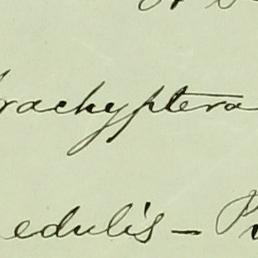 rachyptera
edulis – P